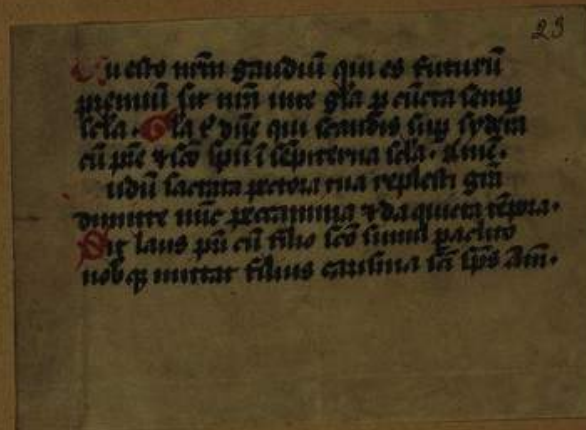 23
Tu esto nr̄m gaudiū qui es futurū
premiū sit nr̄a in te gl̄a ꝑ cūcta semꝑ
sc̄la. Gl̄a t̄ dn̄e qui scandis suꝑ sydera
cū pr̄e ⁊ sc̄o spū ī sēpiterna sc̄la. Amē.
udū sacrata pectora tua replesti gr̄a
dimitte nūc peccamina ⁊ da quieta tēpora.
Sit laus pr̄i cū filio sc̄o simul ꝑaclito
nobꝫ qꝫ mittat filius carisma sc̄i sp̄s Am̄.